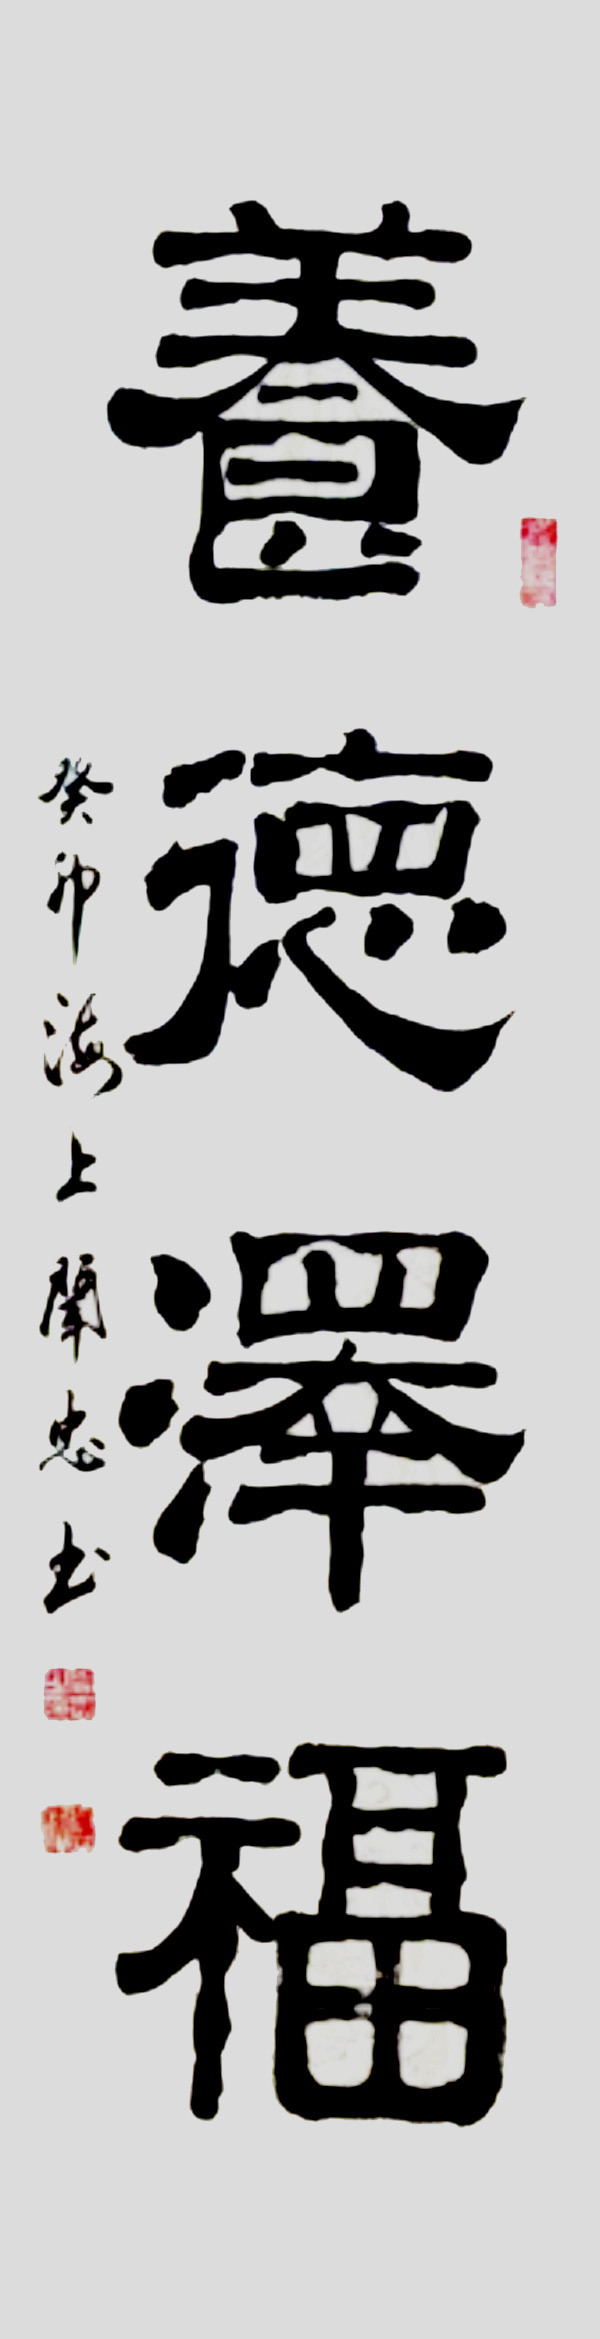 養德澤福
癸卯海上闡忠书